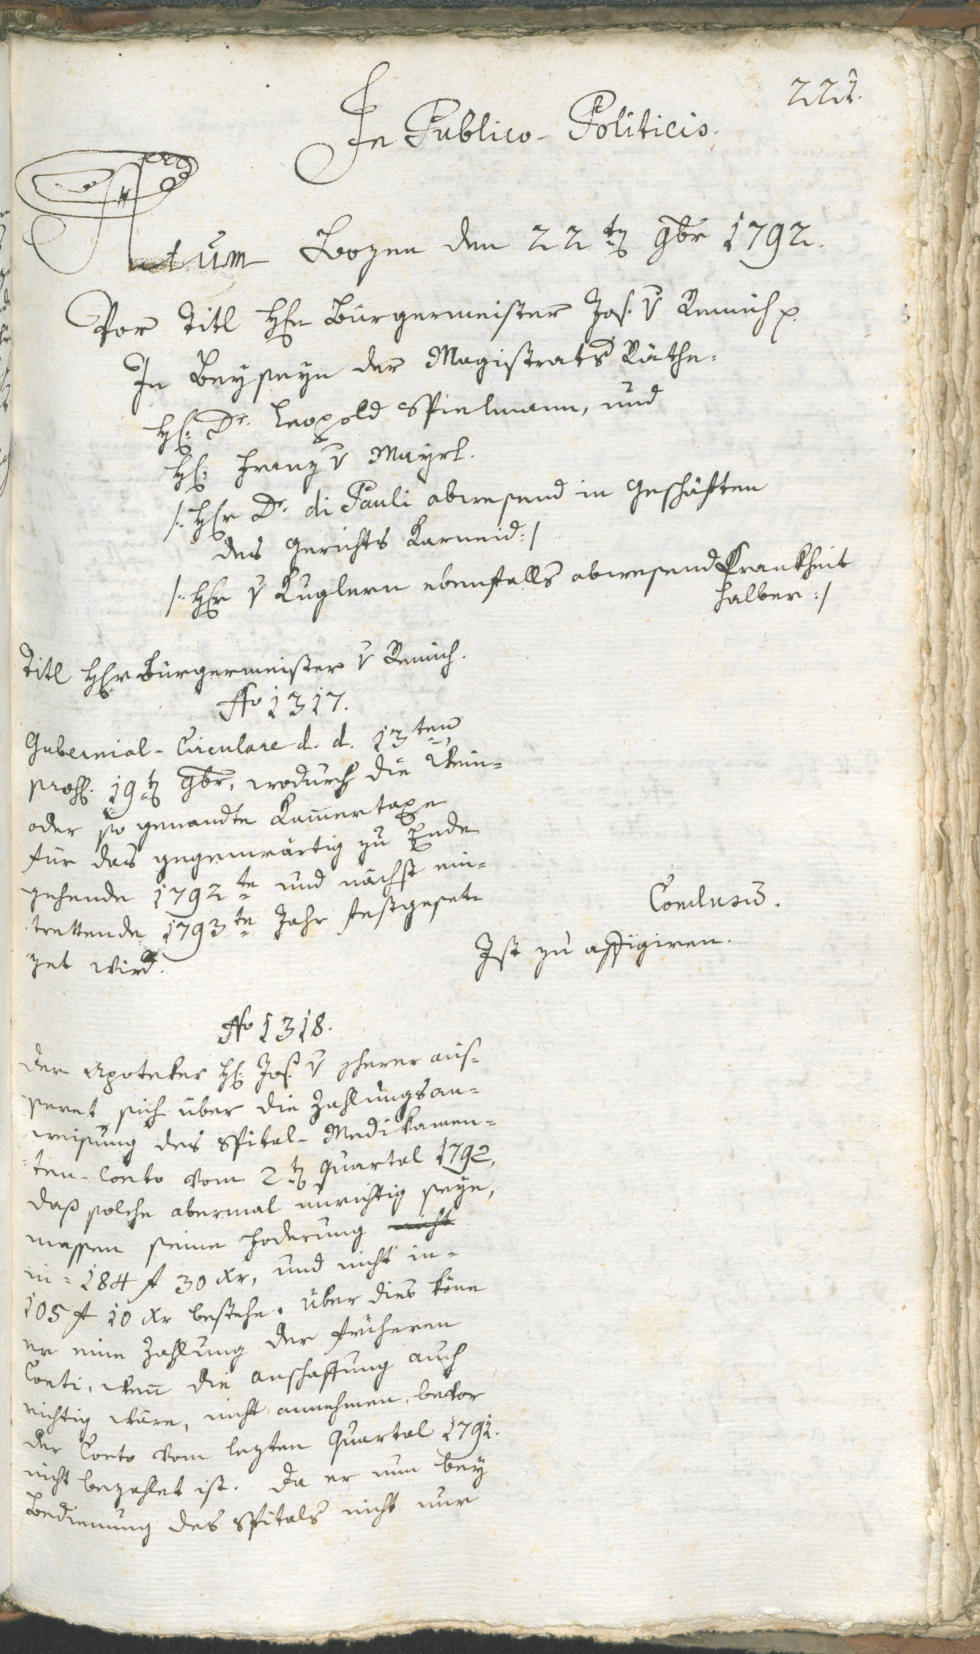 221.
In Publico-Politicis.
Actum Bozen den 22 t. 9br 1792.
Vor Titl Hh Bürgermeister Jos. v Remich p.
In Beyseyn der Magistrats Räthe.
H: Dr. Leopold Spielmann, und
H: Franz v Mayrl.
/: Hr Dr. di Pauli abwesend in Geschäften
des Gerichts Karneid :/
/: Hr v Kuglern ebenfalls abwesend Krankheit
halber :/
Titl Hr Bürgermeister v Remich.
No 1317.
Gubernial-Circulare d. d. 13ten
præs: 19t 9br, wodurch die Wein-
oder so genandte Kam̄ertaxe
für das gegenwärtig zu Ende
gehende 1792te und nächst ein-
trettende 1793te Jahr festgese-
zet wird.
Conclusū.
Ist zu affigiren.
No 1318.
Der Apoteker H: Jos. v Scherer äus-
seret sich über die Zahlungsan-
weisung des Spital-Medikamen-
ten-Conto vom 2t Quartal 1792,
daß solche abermal unrichtig seye,
massen seine Foderung nicht
in = 184 f 30 xr, und nicht in =
105 f 10 xr bestehe. Über dies köne
er eine Zahlung der früheren
Conti, wen̄ die Anschaffung auch
richtig wäre, nicht annehmen, bevor
der Conto vom lezten Quartal 1791.
nicht bezahlet ist. Da er nun bey
Bedienung des Spitals nicht nur